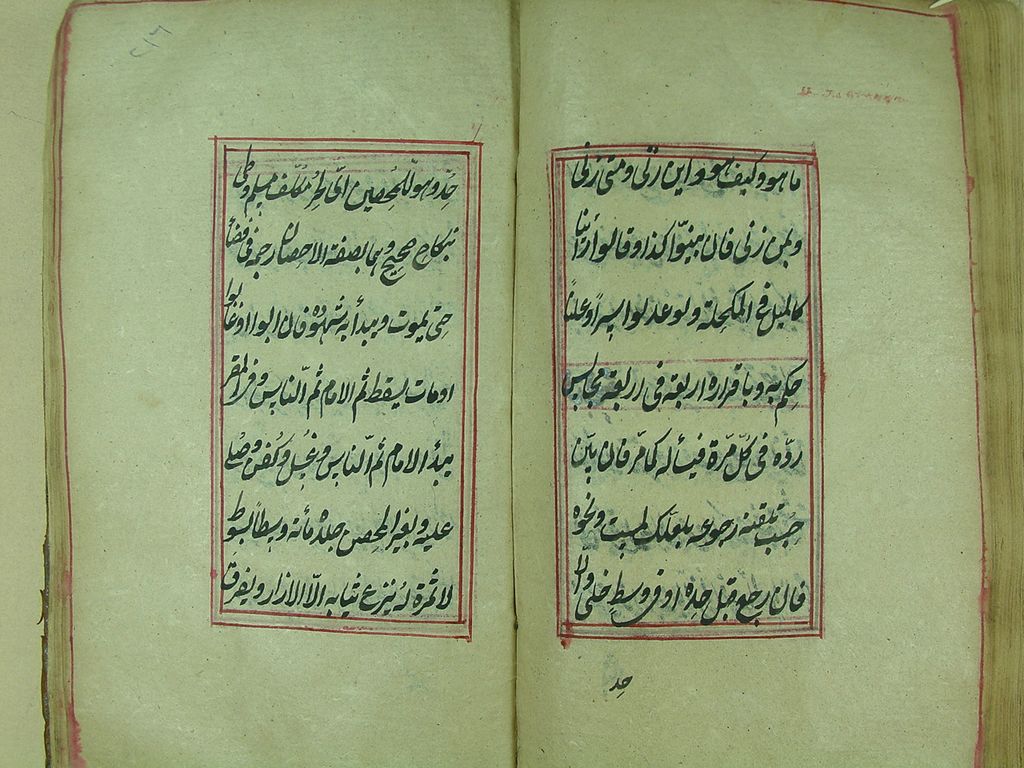 ما هو وكيف هو واين زنى ومتى زنى
وبمن زنى فان بينوا كذا وقالوا رأينا
كالميل فى المكحلة ولو عدلوا سراً وعلناً
حكم به وباقراره اربعة فى اربعة مجالس
ردّه فى كلّ مرّة فيسأله كما مرّ فان بيّن
حُب تلقينه رجوعه بلعلّك لمست ونحوه
فان رجع قبل حدّه او فى وسطه خلى والّا
حد
حُدّ وهو للمحصن اى لحرّ مُكلّف مسلم وطئ
بنكاح صحيح وهما بصفة الاحصان رجمه فى فضاء
حتى يموت ويبدأ به شهوده فان ابوا او غابوا
او مات يسقط ثم الامام ثم النّاس وفى المقر
يبدأ الامام ثم النّاس وغُسل وكُفن وصُلى
عليه ولغير المحصن جلده مائة وسطاً بسوط
لا ثمرة له ينزع ثيابه الّا الازار ويفرق